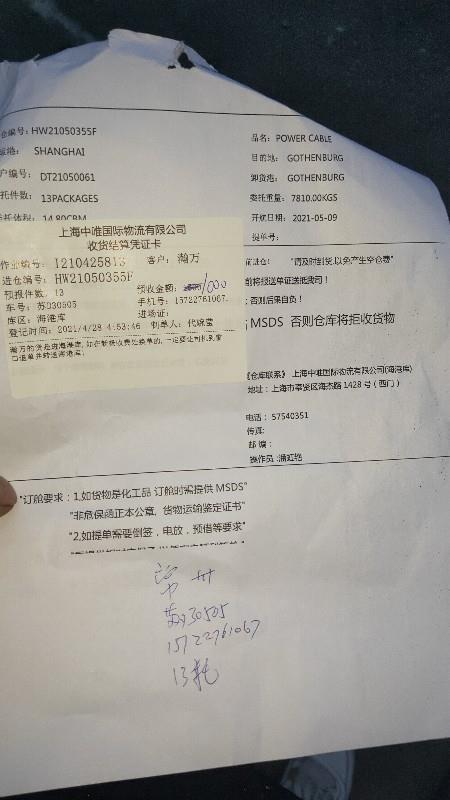 仓编号: HW21050355F
品名: POWER CABLE
SHANGHAI
目的地: GOTHENBURG
户编号: DT21050061
卸货港: GOTHENBURG
托件数: 13PACKAGES
委托重量: 7810.00KGS
托体积: 14.80CBM
开航日期: 2021-05-09
提单号:
上海中唯国际物流有限公司
收货结算凭证卡
作业编号: 1210425813 客户: 瀚万
进仓编号: HW21050355F
预报件数: 13 预收金额: 1000
车号: 苏D30505 手机号: 15722761067
库区: 海港库 进场证:
登记时间: 2021/4/28 4:53:46 制单人: 代婉莹
前进仓! "请及时到货,以免产生空仓费"
前将报送单证送抵我司!
: 否则后果自负!
MSDS 否则仓库将拒收货物
《仓库联系》 上海中唯国际物流有限公司(海港库)
地址: 上海市奉贤区海杰路1428号 (西门)
电话: 57540351
传真:
邮编:
操作员:潘虹艳
"订舱要求: 1,如货物是化工品 订舱时需提供 MSDS"
"非危保函正本公章, 货物运输鉴定证书"
"2,如提单需要倒签, 电放, 预借等要求"
常州
苏D30505
15722761067
13托